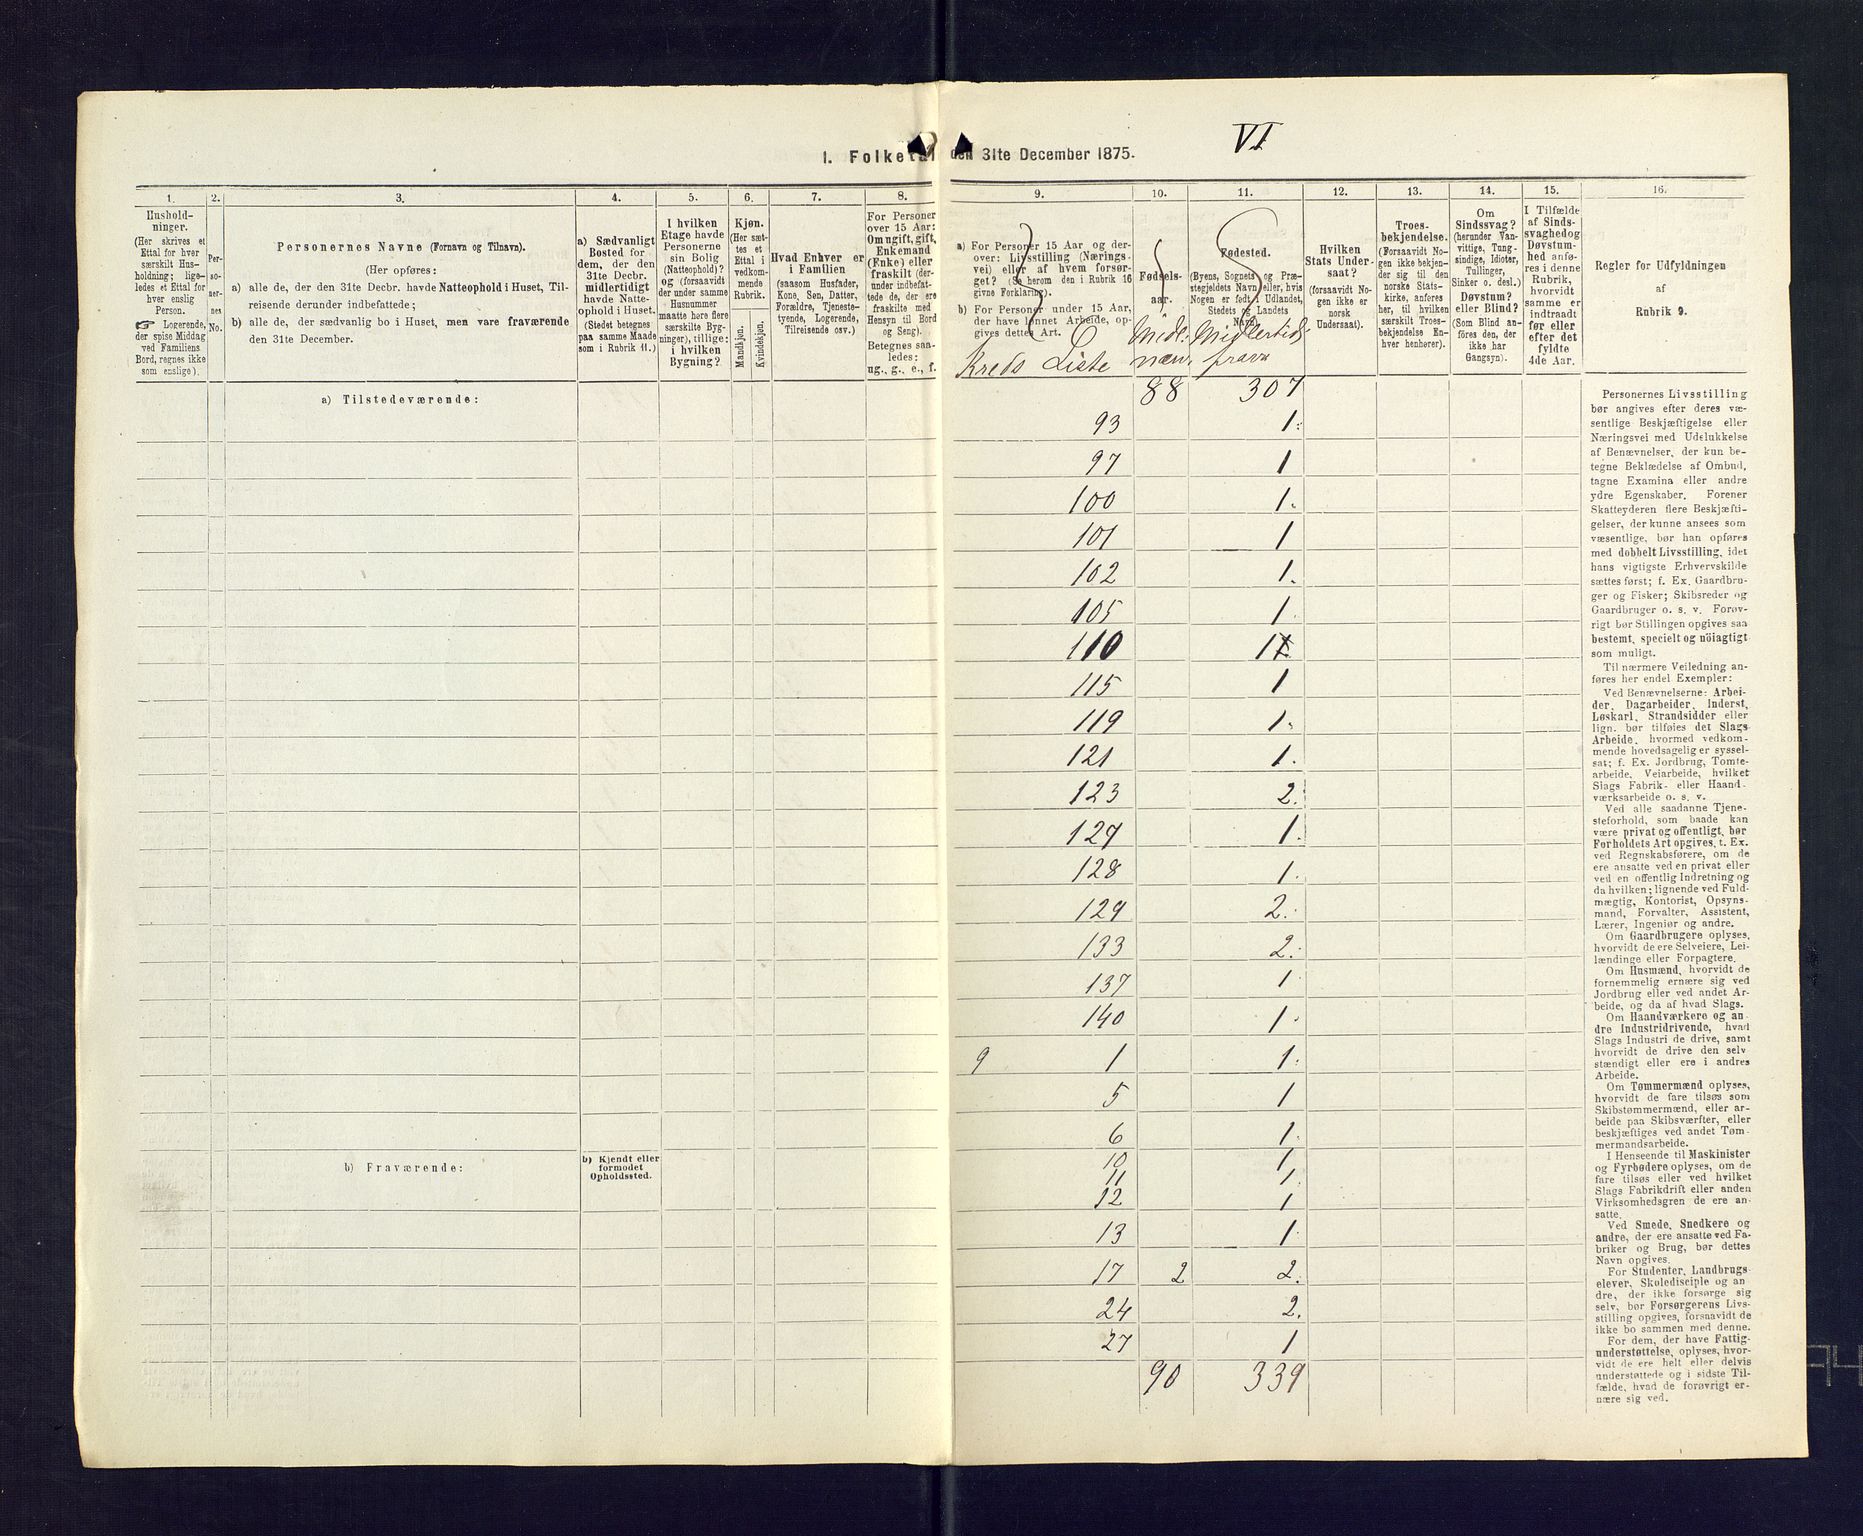 VI
1. Folketal den 31te December 1875.
1.
2.
3.
4.
5.
6.
7.
8.
9.
10.
11.
12.
13.
14.
15.
16.
Hushold-
ninger.
(Her skrives et
Ettal for hver
særskilt Hus-
holdning; lige-
ledes et Ettal for
hver enslig
Person.
☞ Logerende,
der spise Middag
ved Familiens
Bord, regnes ikke
som enslige).
Per-
so-
ner-
nes
No.
Personernes Navne (Fornavn og Tilnavn).
(Her opføres:
a) alle de, der den 31te Decbr. havde Natteophold i Huset, Til-
reisende derunder indbefattede;
b) alle de, der sædvanlig bo i Huset, men vare fraværende
den 31te December.
a) Sædvanligt
Bosted for
dem, der den
31te Decbr.
midlertidigt
havde Natte-
ophold i Huset.
(Stedet betegnes
paa samme Maade
som i Rubrik 11.)
I hvilken
Etage havde
Personerne
sin Bolig
(Natteophold)?
og (forsaavidt
der under samme
Husnummer
maatte høre flere
særskilte Byg-
ninger), tillige:
i hvilken
Bygning?
Kjøn.
(Her sæt-
tes et
Ettal i
vedkom-
mende
Rubrik.
Mandkjøn.
Kvindekjøn.
Hvad Enhver er
i Familien
(saasom Husfader,
Kone, Søn, Datter,
Forældre, Tjeneste-
tyende, Logerende,
Tilreisende osv.)
For Personer
over 15 Aar:
Om ugift, gift,
Enkemand
(Enke) eller
fraskilt (der-
under indbefat-
tede de, der ere
fraskilte med
Hensyn til Bord
og Seng).
Betegnes saa-
ledes:
ug., g., e., f.
a) For Personer 15 Aar og der-
over: Livsstilling (Nærings-
vei) eller af hvem forsør-
get? (Se herom den i Rubrik 16
givne Forklaring).
b) For Personer under 15 Aar,
der have lønnet Arbeide, op-
gives dettes Art.
Fødsels-
aar.
Fødested.
(Byens, Sognets og Præ-
stegjeldets Navn eller, hvis
Nogen er født i Udlandet,
Stedets og Landets
Navn).
Hvilken
Stats Under-
saat?
(forsaavidt No-
gen ikke er
norsk
Undersaat).
Troes-
bekjendelse.
(Forsaavidt No-
gen ikke bekjen-
der sig til den
norske Stats-
kirke, anføres
her, til hvilken
særskilt Troes-
bekjendelse En-
hver henhører).
Om
Sindssvag?
(herunder Van-
vittige, Tung-
sindige, Idioter,
Tullinger,
Sinker o. desl.)
Døvstum?
eller Blind?
(Som Blind an-
føres den, der
ikke har
Gangsyn).
I Tilfælde
af Sinds-
svaghed og
Døvstum-
hed anfø-
res i denne
Rubrik,
hvorvidt
samme er
indtraadt
før eller
efter det
fyldte
4de Aar.
Regler for Udfyldningen
af
Rubrik 9.
Kreds Liste
Midl. nærv.
Midlertids frav
a) Tilstedeværende:
88 307
93 1.
97 1
100 1.
101 1
102 1.
105 1.
110 1
115 1
119 1.
121 1.
123 2.
127 1.
128 1.
129 2.
133 2.
137 1
140 1.
9 1 1.
5 1
6 1.
10 1
11 1.
12 1
13 1.
17 2 2.
24 2.
27 1
90 339
b) Fraværende:
b) Kjendt eller
formodet
Opholdssted.
Personernes Livsstilling
bør angives efter deres væ-
sentlige Beskjæftigelse eller
Næringsvei med Udelukkelse
af Benævnelser, der kun be-
tegne Beklædelse af Ombud,
tagne Examina eller andre
ydre Egenskaber. Forener
Skatteyderen flere Beskjæfti-
gelser, der kunne ansees som
væsentlige, bør han opføres
med dobbelt Livsstilling, idet
hans vigtigste Erhvervskilde
sættes først; f. Ex. Gaardbru-
ger og Fisker; Skibsreder og
Gaardbruger o. s. v. Forøv-
rigt bør Stillingen opgives saa
bestemt, specielt og nöiagtigt
som muligt.
Til nærmere Veiledning an-
føres her endel Exempler:
Ved Benævnelserne: Arbei-
der, Dagarbeider, Inderst,
Løskarl, Strandsidder eller
lign. bør tilføies det Slags
Arbeide, hvormed vedkom-
mende hovedsagelig er syssel-
sat; f. Ex. Jordbrug, Tomte-
arbeide, Veiarbeide, hvilket
Slags Fabrik- eller Haand-
værksarbeide o. s. v.
Ved alle saadanne Tjene-
steforhold, som baade kan
være privat og offentligt, bør
Forholdets Art opgives, f. Ex.
ved Regnskabsførere, om de
ere ansatte ved en privat eller
ved en offentlig Indretning og
da hvilken; lignende ved Fuld-
mægtig, Kontorist, Opsyns-
mand, Forvalter, Assistent,
Lærer, Ingeniør og andre.
Om Gaardbrugere oplyses,
hvorvidt de ere Selveiere, Lei-
lændinge eller Forpagtere.
Om Husmænd, hvorvidt de
fornemmelig ernære sig ved
Jordbrug eller ved andet Ar-
beide, og da af hvad Slags.
Om Haandværkere og an-
dre Industridrivende, hvad
Slags Industri de drive, samt
hvorvidt de drive den selv-
stændigt eller ere i andres
Arbeide.
Om Tømmermænd oplyses,
hvorvidt de fare tilsøs som
Skibstømmermænd, eller ar-
beide paa Skibsværfter, eller
beskjæftiges ved andet Tøm-
mermandsarbeide.
I Henseende til Maskinister
og Fyrbødere oplyses, om de
fare tilsøs eller ved hvilket
Slags Fabrikdrift eller anden
Virksomhedsgren de ere an-
satte.
Ved Smede, Snedkere og
andre, der ere ansatte ved Fa-
briker og Brug, bør dettes
Navn opgives.
For Studenter, Landbrugs-
elever, Skoledisciple og an-
dre, der ikke forsørge sig
selv, bør Forsørgerens Livs-
stilling opgives, forsaavidt de
ikke bo sammen med denne.
For dem, der have Fattig-
understøttelse, oplyses, hvor-
vidt de ere helt eller delvis
understøttede og i sidste Til-
fælde, hvad de forøvrigt er-
nære sig ved.